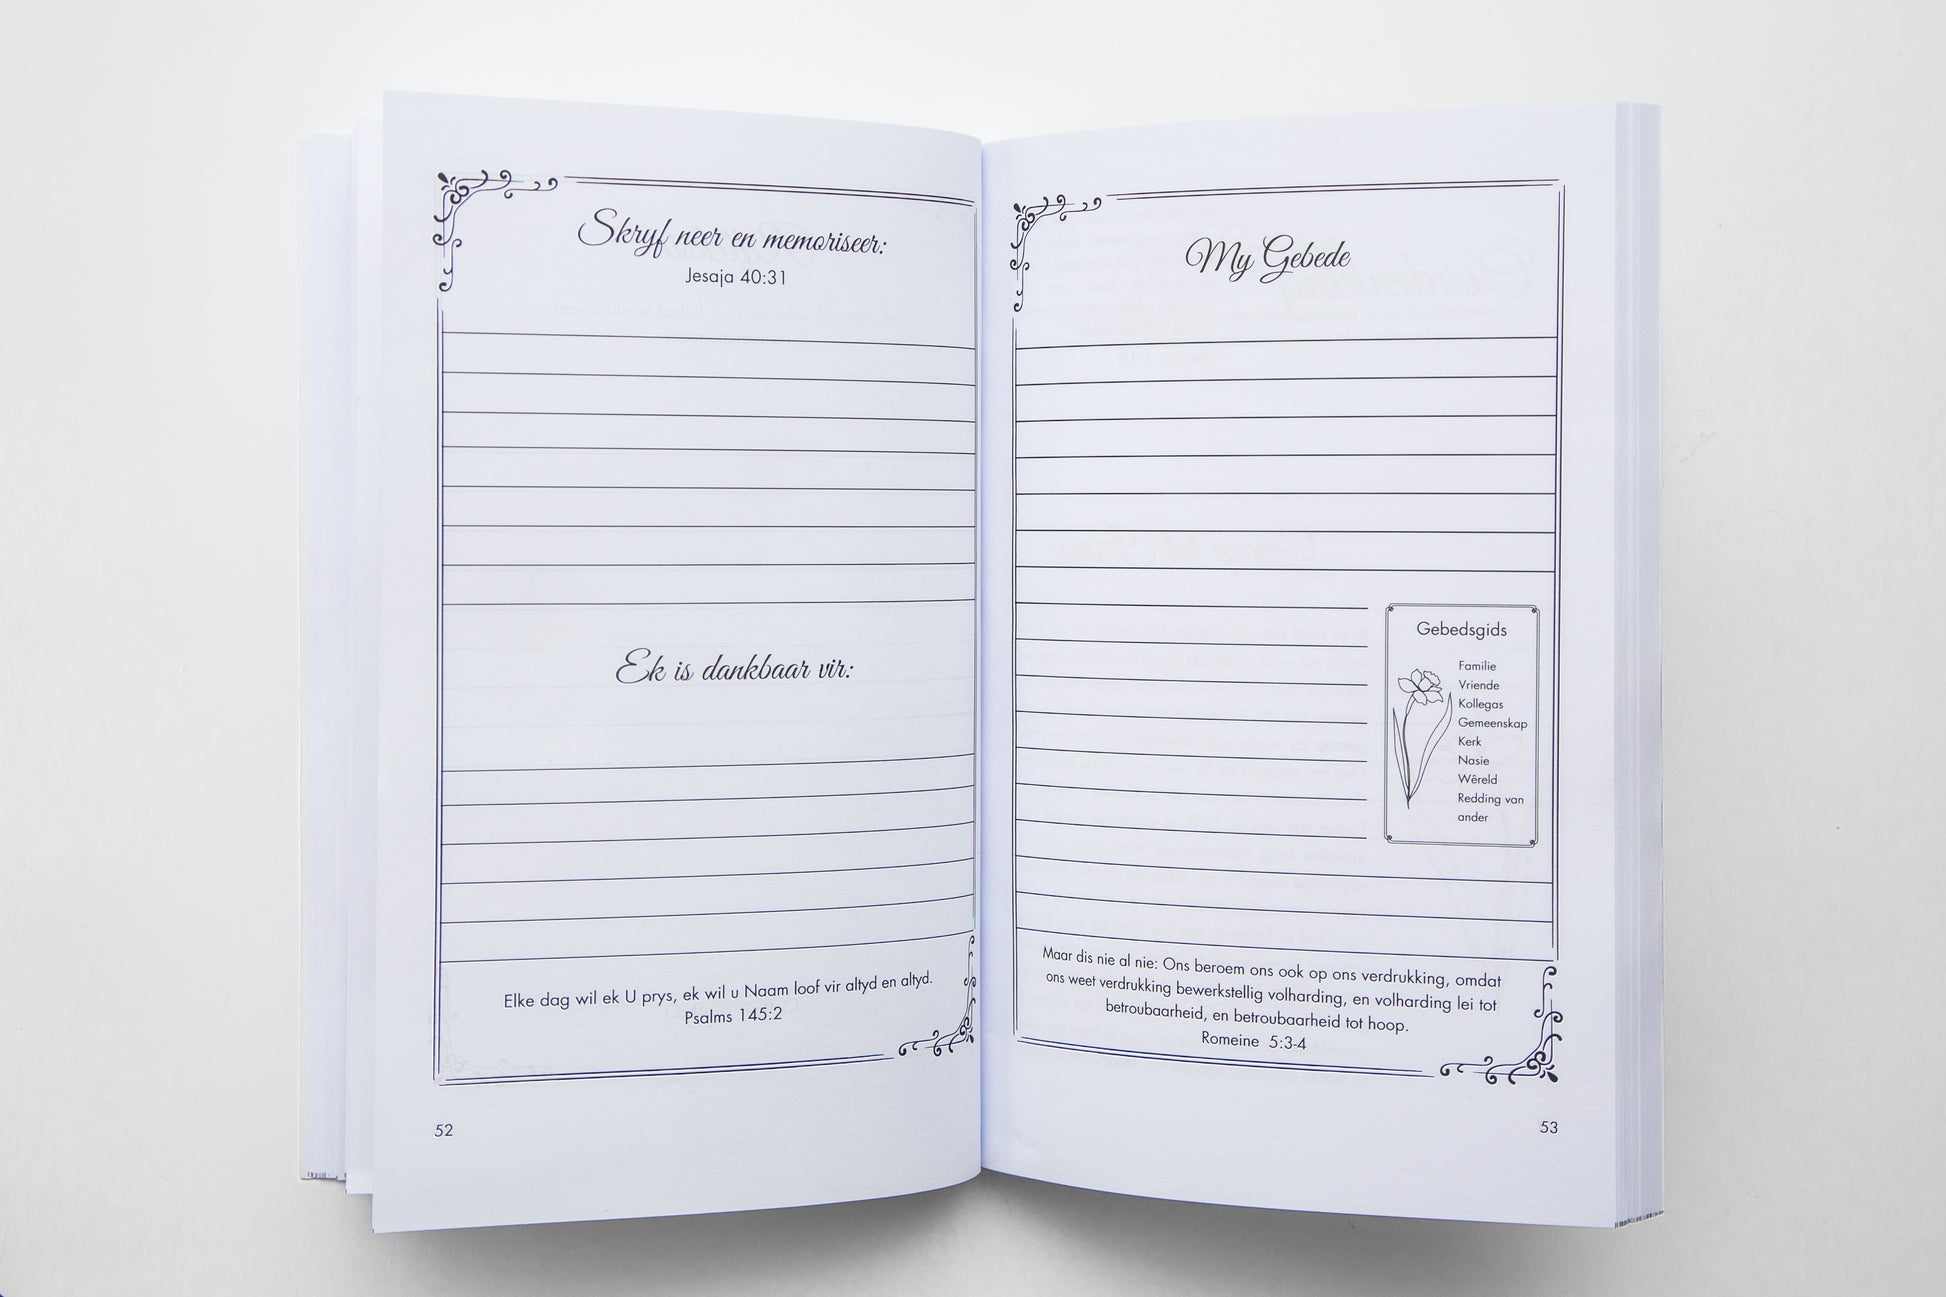 Skryf neer en memoriseer:
Jesaja 40:31
Ek is dankbaar vir:
Elke dag wil ek U prys, ek wil u Naam loof vir altyd en altyd.
Psalms 145:2
52
My Gebede
Gebedsgids
Familie
Vriende
Kollegas
Gemeenskap
Kerk
Nasie
Wêreld
Redding van
ander
Maar dis nie al nie: Ons beroem ons ook op ons verdrukking, omdat
ons weet verdrukking bewerkstellig volharding, en volharding lei tot
betroubaarheid, en betroubaarheid tot hoop.
Romeine 5:3-4
53